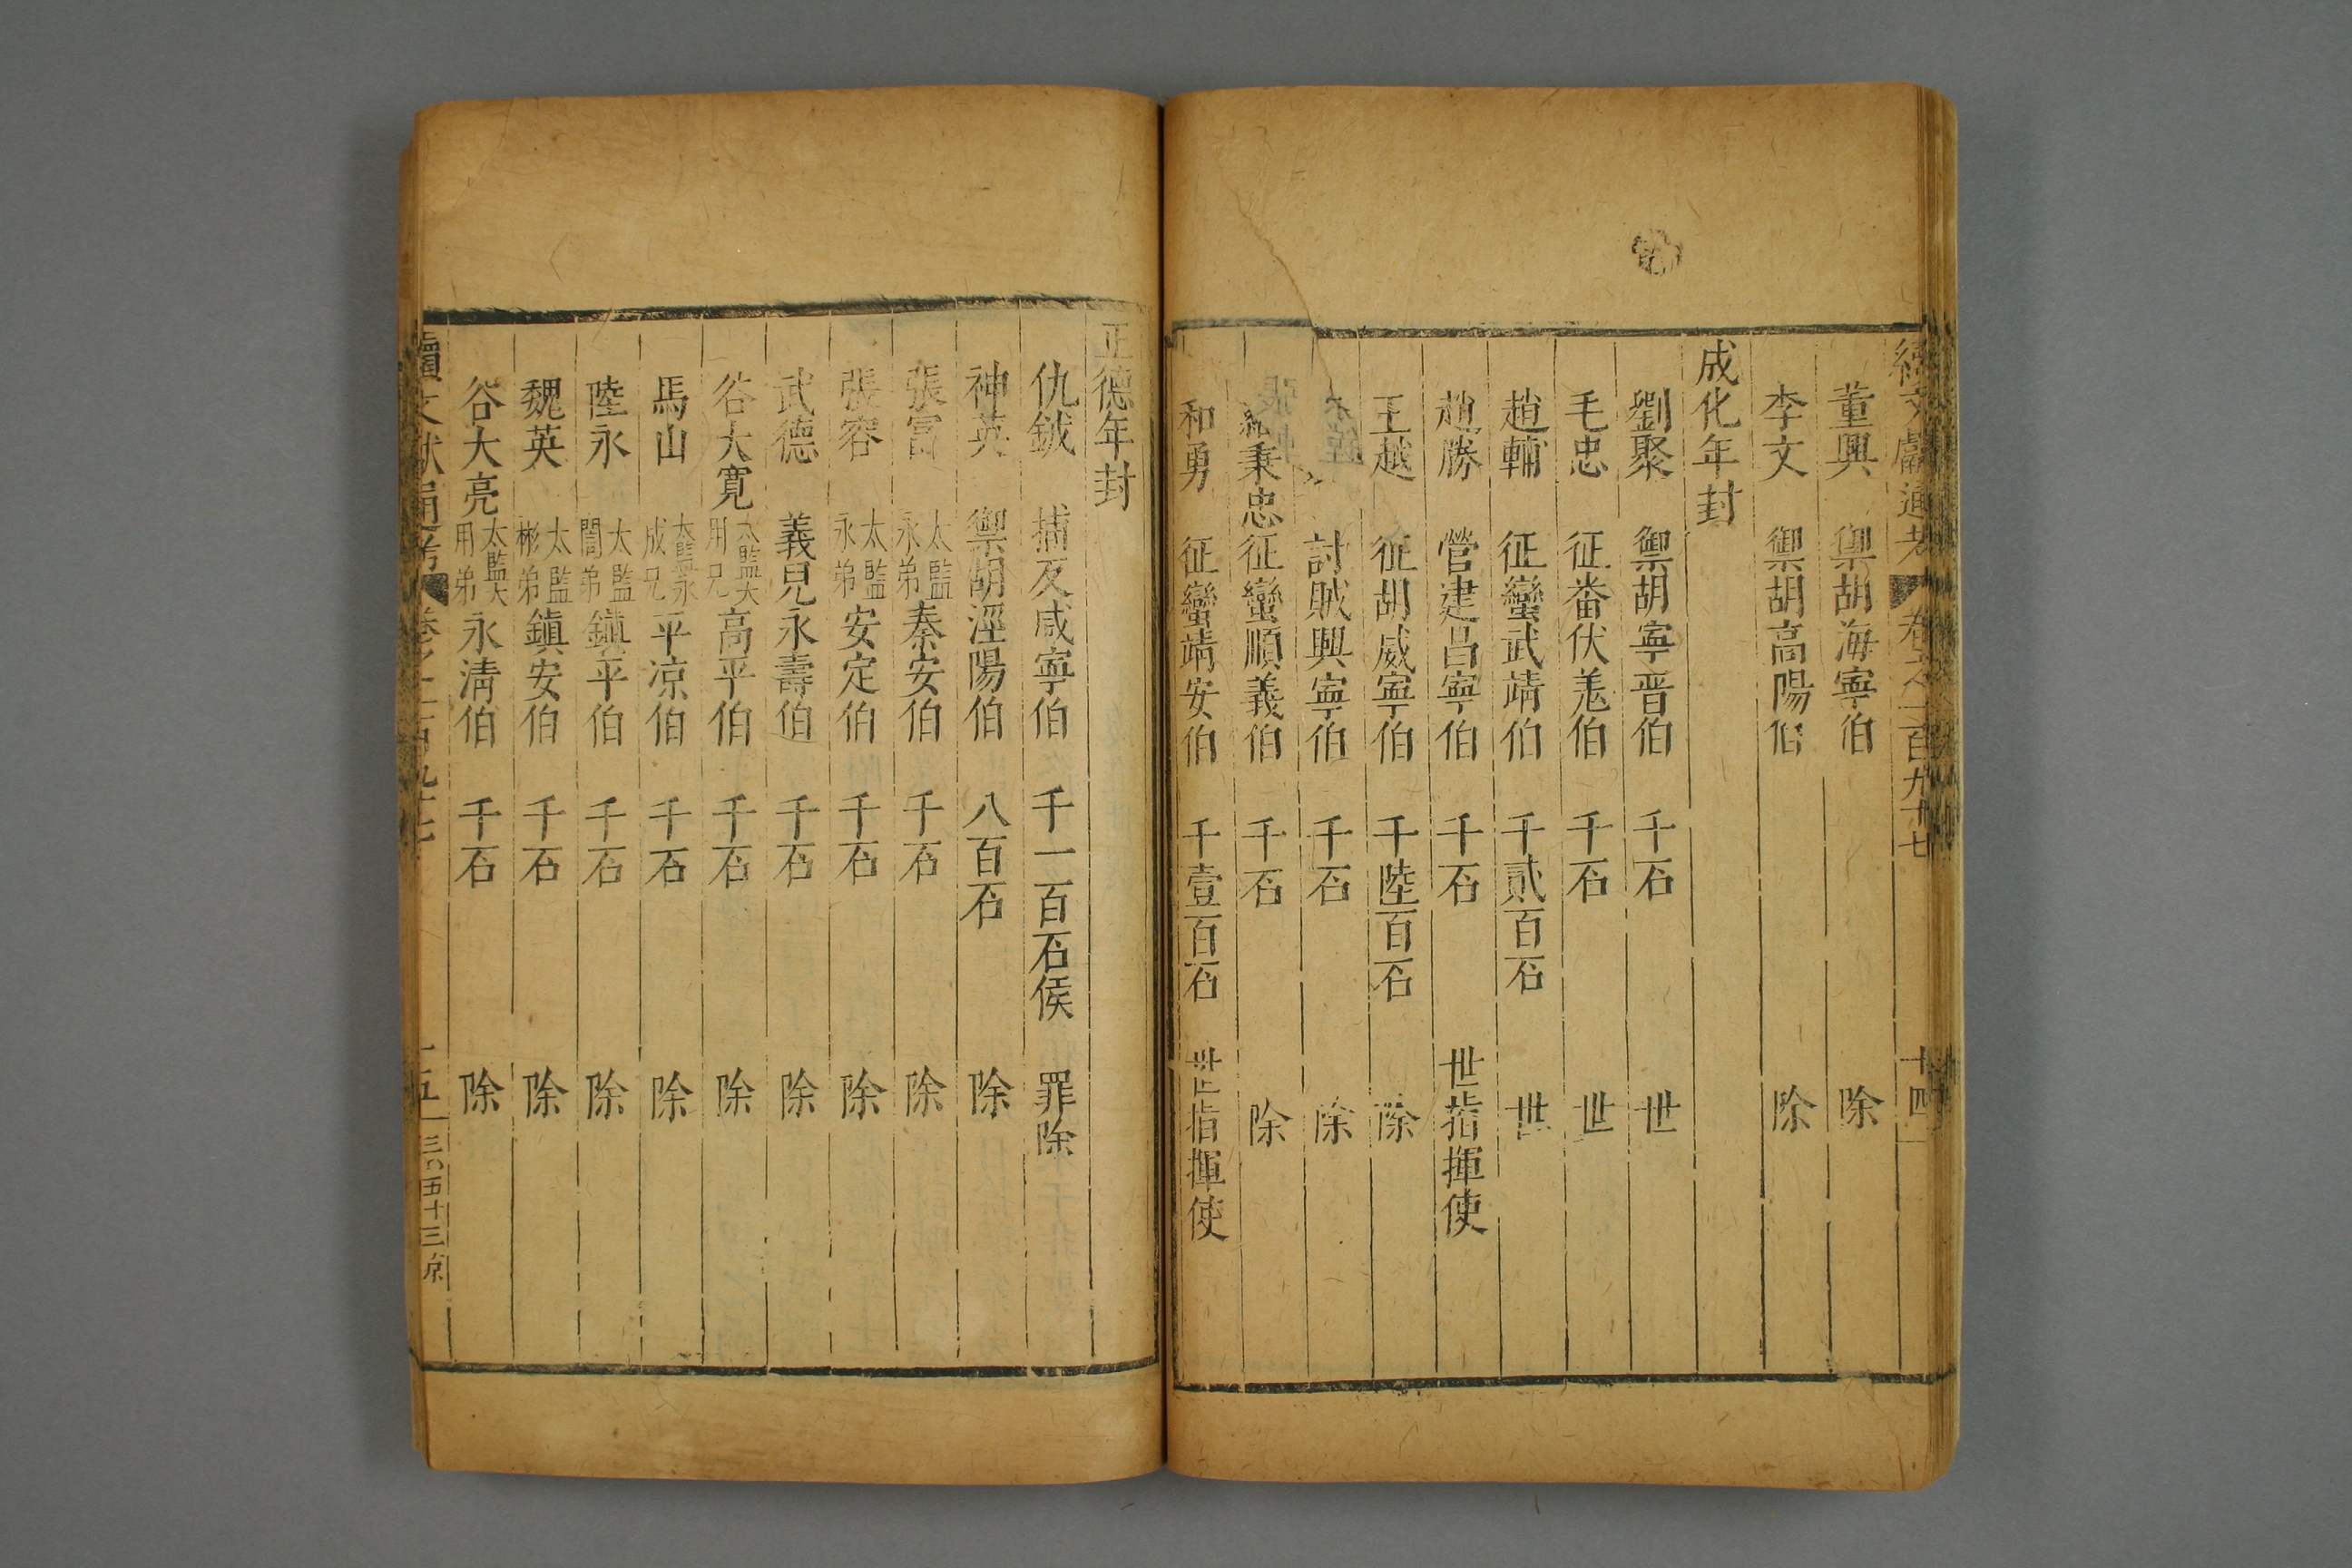 續文獻通考 卷之一百九十七 十四
董興 禦胡海寧伯 除
李文 禦胡高陽伯 除
成化年封
劉聚 禦胡寧晋伯 千石 世
毛忠 征畨伏羗伯 千石 世
趙輔 征蠻武靖伯 千貳百石 世
趙勝 營建昌寧伯 千石 世指揮使
王越 征胡威寧伯 千陸百石 除
討賊興寧伯 千石 除
秉忠 征蠻順義伯 千石 除
和勇 征蠻靖安伯 千壹百石 世指揮使
正德年封
仇鉞 捕反咸寧伯 千一百石侯 罪除
神英 禦胡涇陽伯 八百石 除
張富 太監永弟 秦安伯 千石 除
張容 太監永弟 安定伯 千石 除
武德 義兒永壽伯 千石 除
谷大寬 太監大用兄 高平伯 千石 除
馬山 太監永成兄 平凉伯 千石 除
陸永 太監誾弟 鎮平伯 千石 除
魏英 太監彬弟 鎮安伯 千石 除
谷大亮 太監大用弟 永清伯 千石 除
續文獻通考 卷之一百九十七 十五 三〇五十三